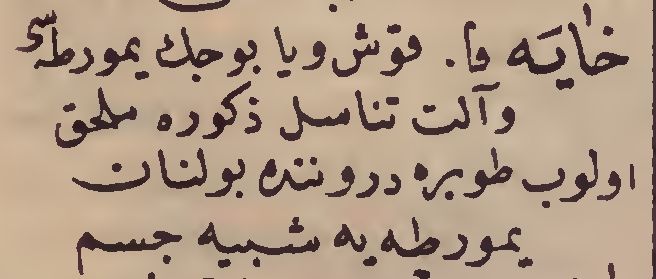 خایَه فا. قوش ویا بوجك یمورطه‌سی
وآلت تناسل ذکوره ملحق
اولوب طوبره دروننده بولنان
یمورطه یه شبیه جسم